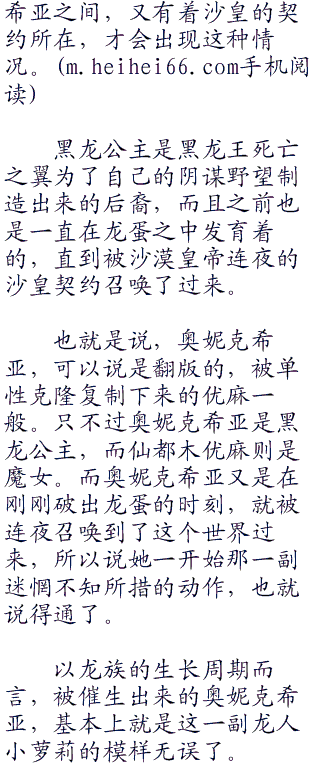 希亚之间，又有着沙皇的契
约所在，才会出现这种情
况。(m.heihei66.com手机阅
读)
黑龙公主是黑龙王死亡
之翼为了自己的阴谋野望制
造出来的后裔，而且之前也
是一直在龙蛋之中发育着
的，直到被沙漠皇帝连夜的
沙皇契约召唤了过来。
也就是说，奥妮克希
亚，可以说是翻版的，被单
性克隆复制下来的优麻一
般。只不过奥妮克希亚是黑
龙公主，而仙都木优麻则是
魔女。而奥妮克希亚又是在
刚刚破出龙蛋的时刻，就被
连夜召唤到了这个世界过
来，所以说她一开始那一副
迷惘不知所措的动作，也就
说得通了。
以龙族的生长周期而
言，被催生出来的奥妮克希
亚，基本上就是这一副龙人
小萝莉的模样无误了。